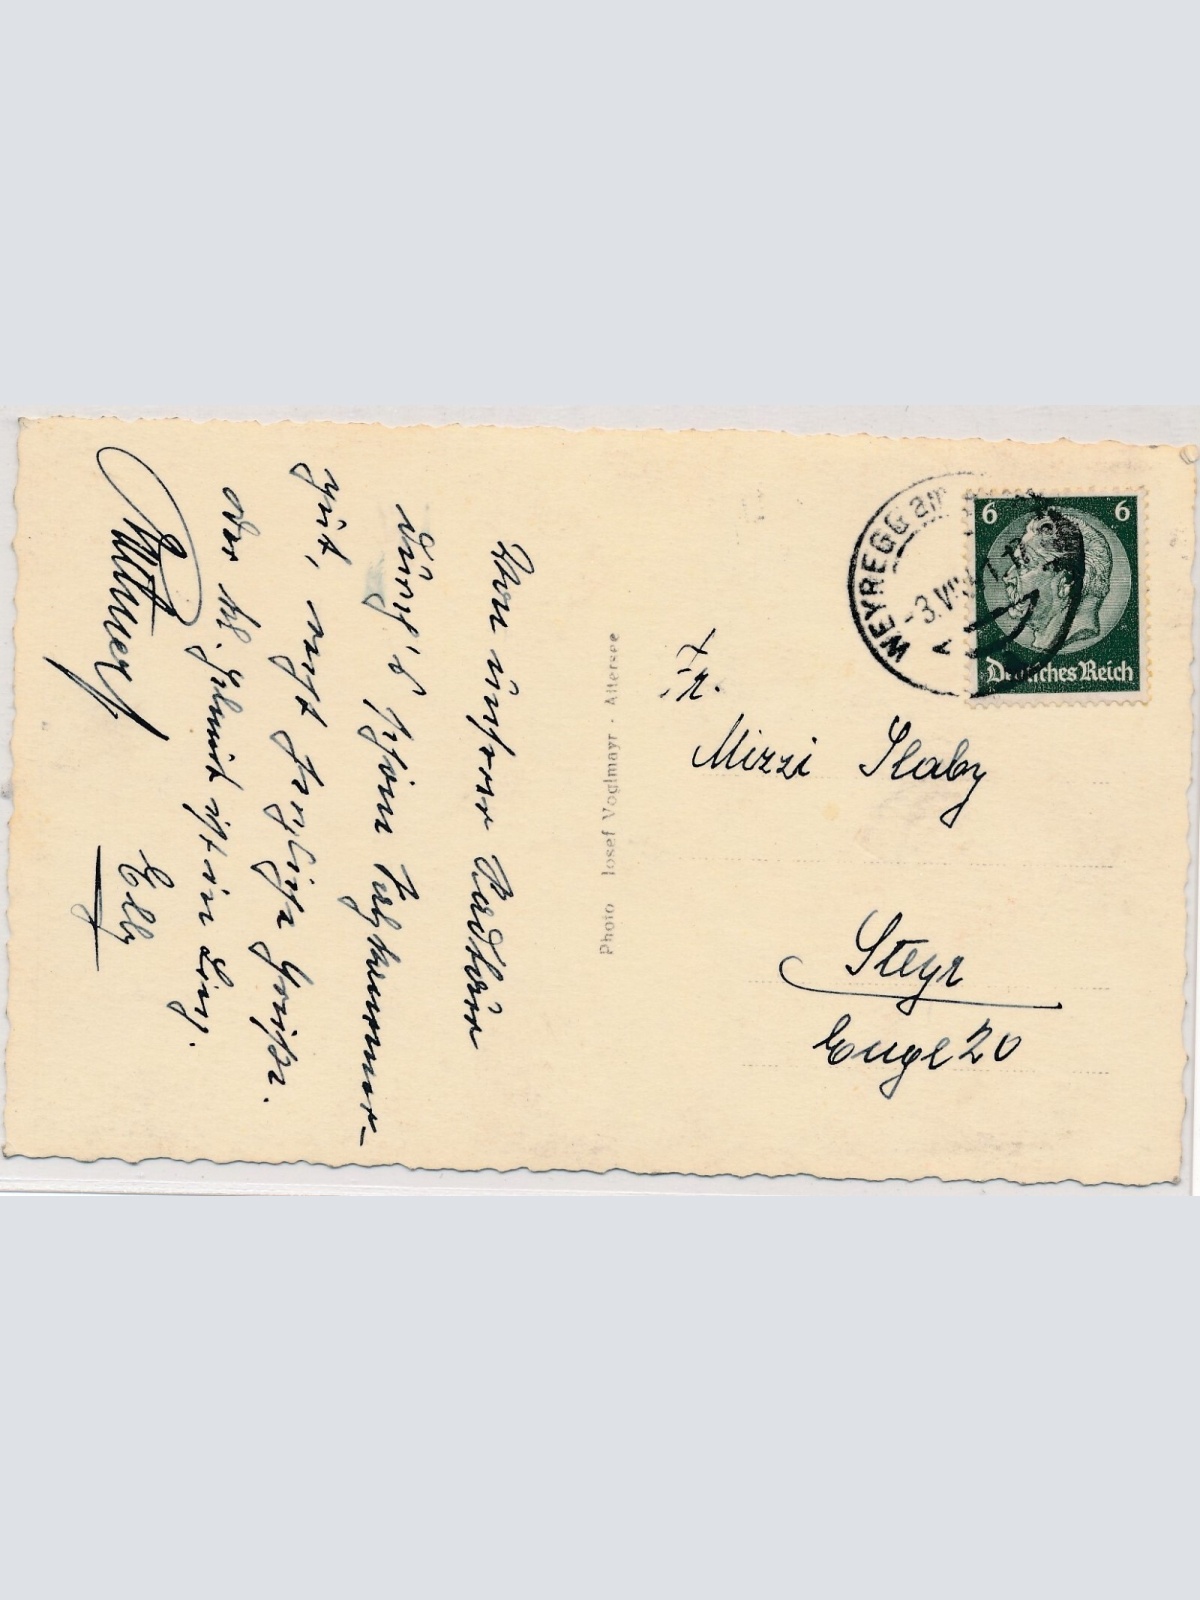 Von unserer Radtour
durch's schöne Salzkammer-
gut, recht herzliche Grüße.
Elly
Photo Josef Voglmayr - Attersee
WEYREGG am
6 6
Deutsches Reich
Fr.
Mizzi Slaby
Steyr
Enge 20